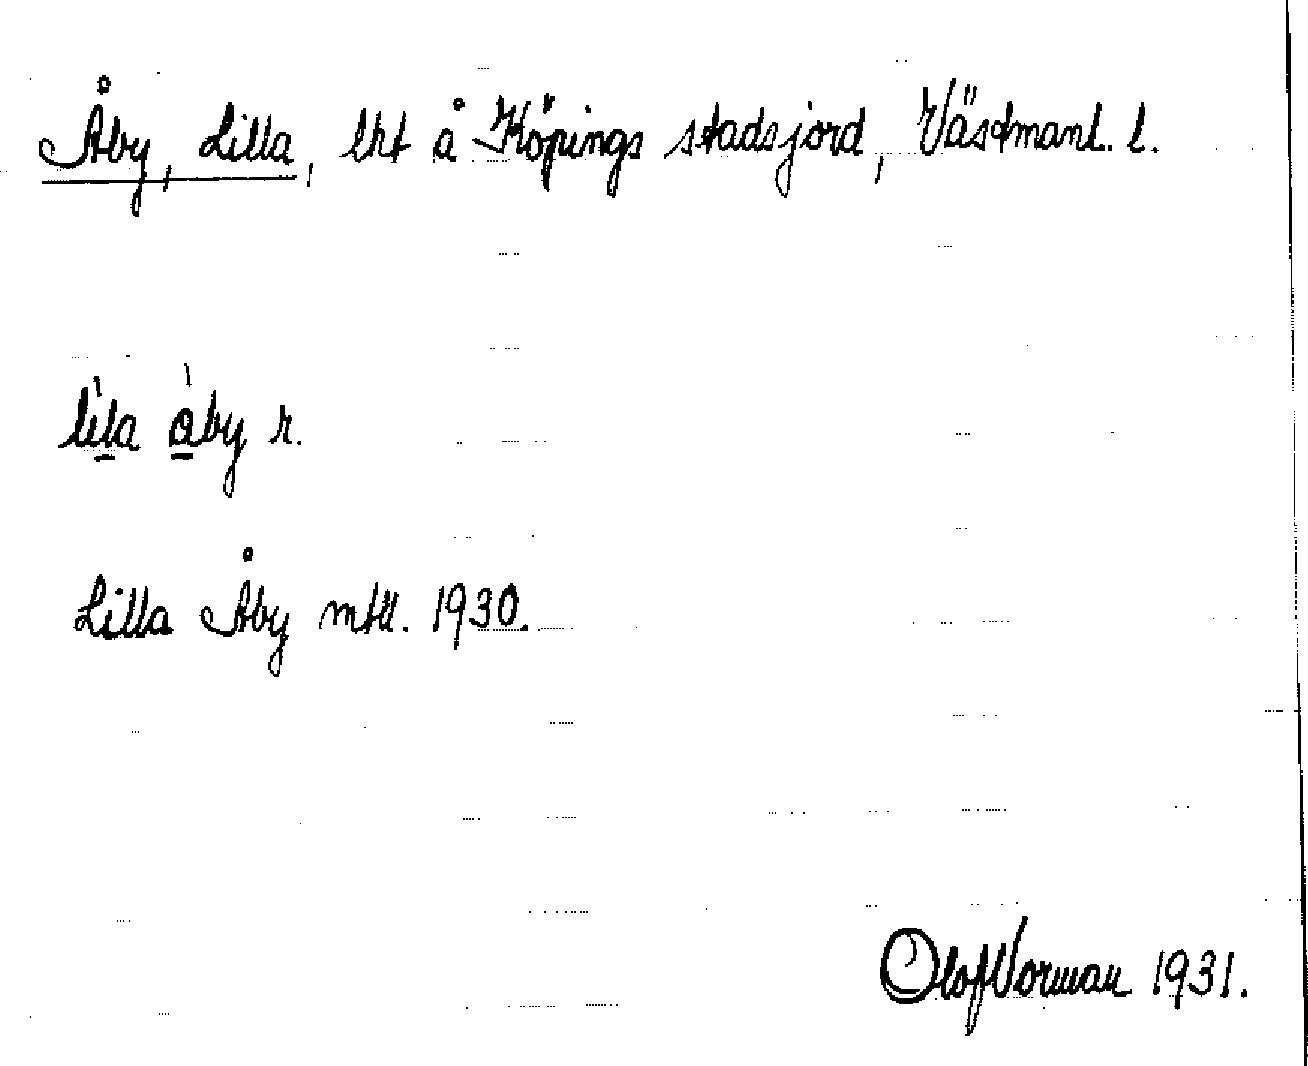 Åby, Lilla, lht å Köpings stadsjord, Västmanl. l.
lìla òby r.
Lilla Åby mtll. 1930.
Olof Vorman 1931.